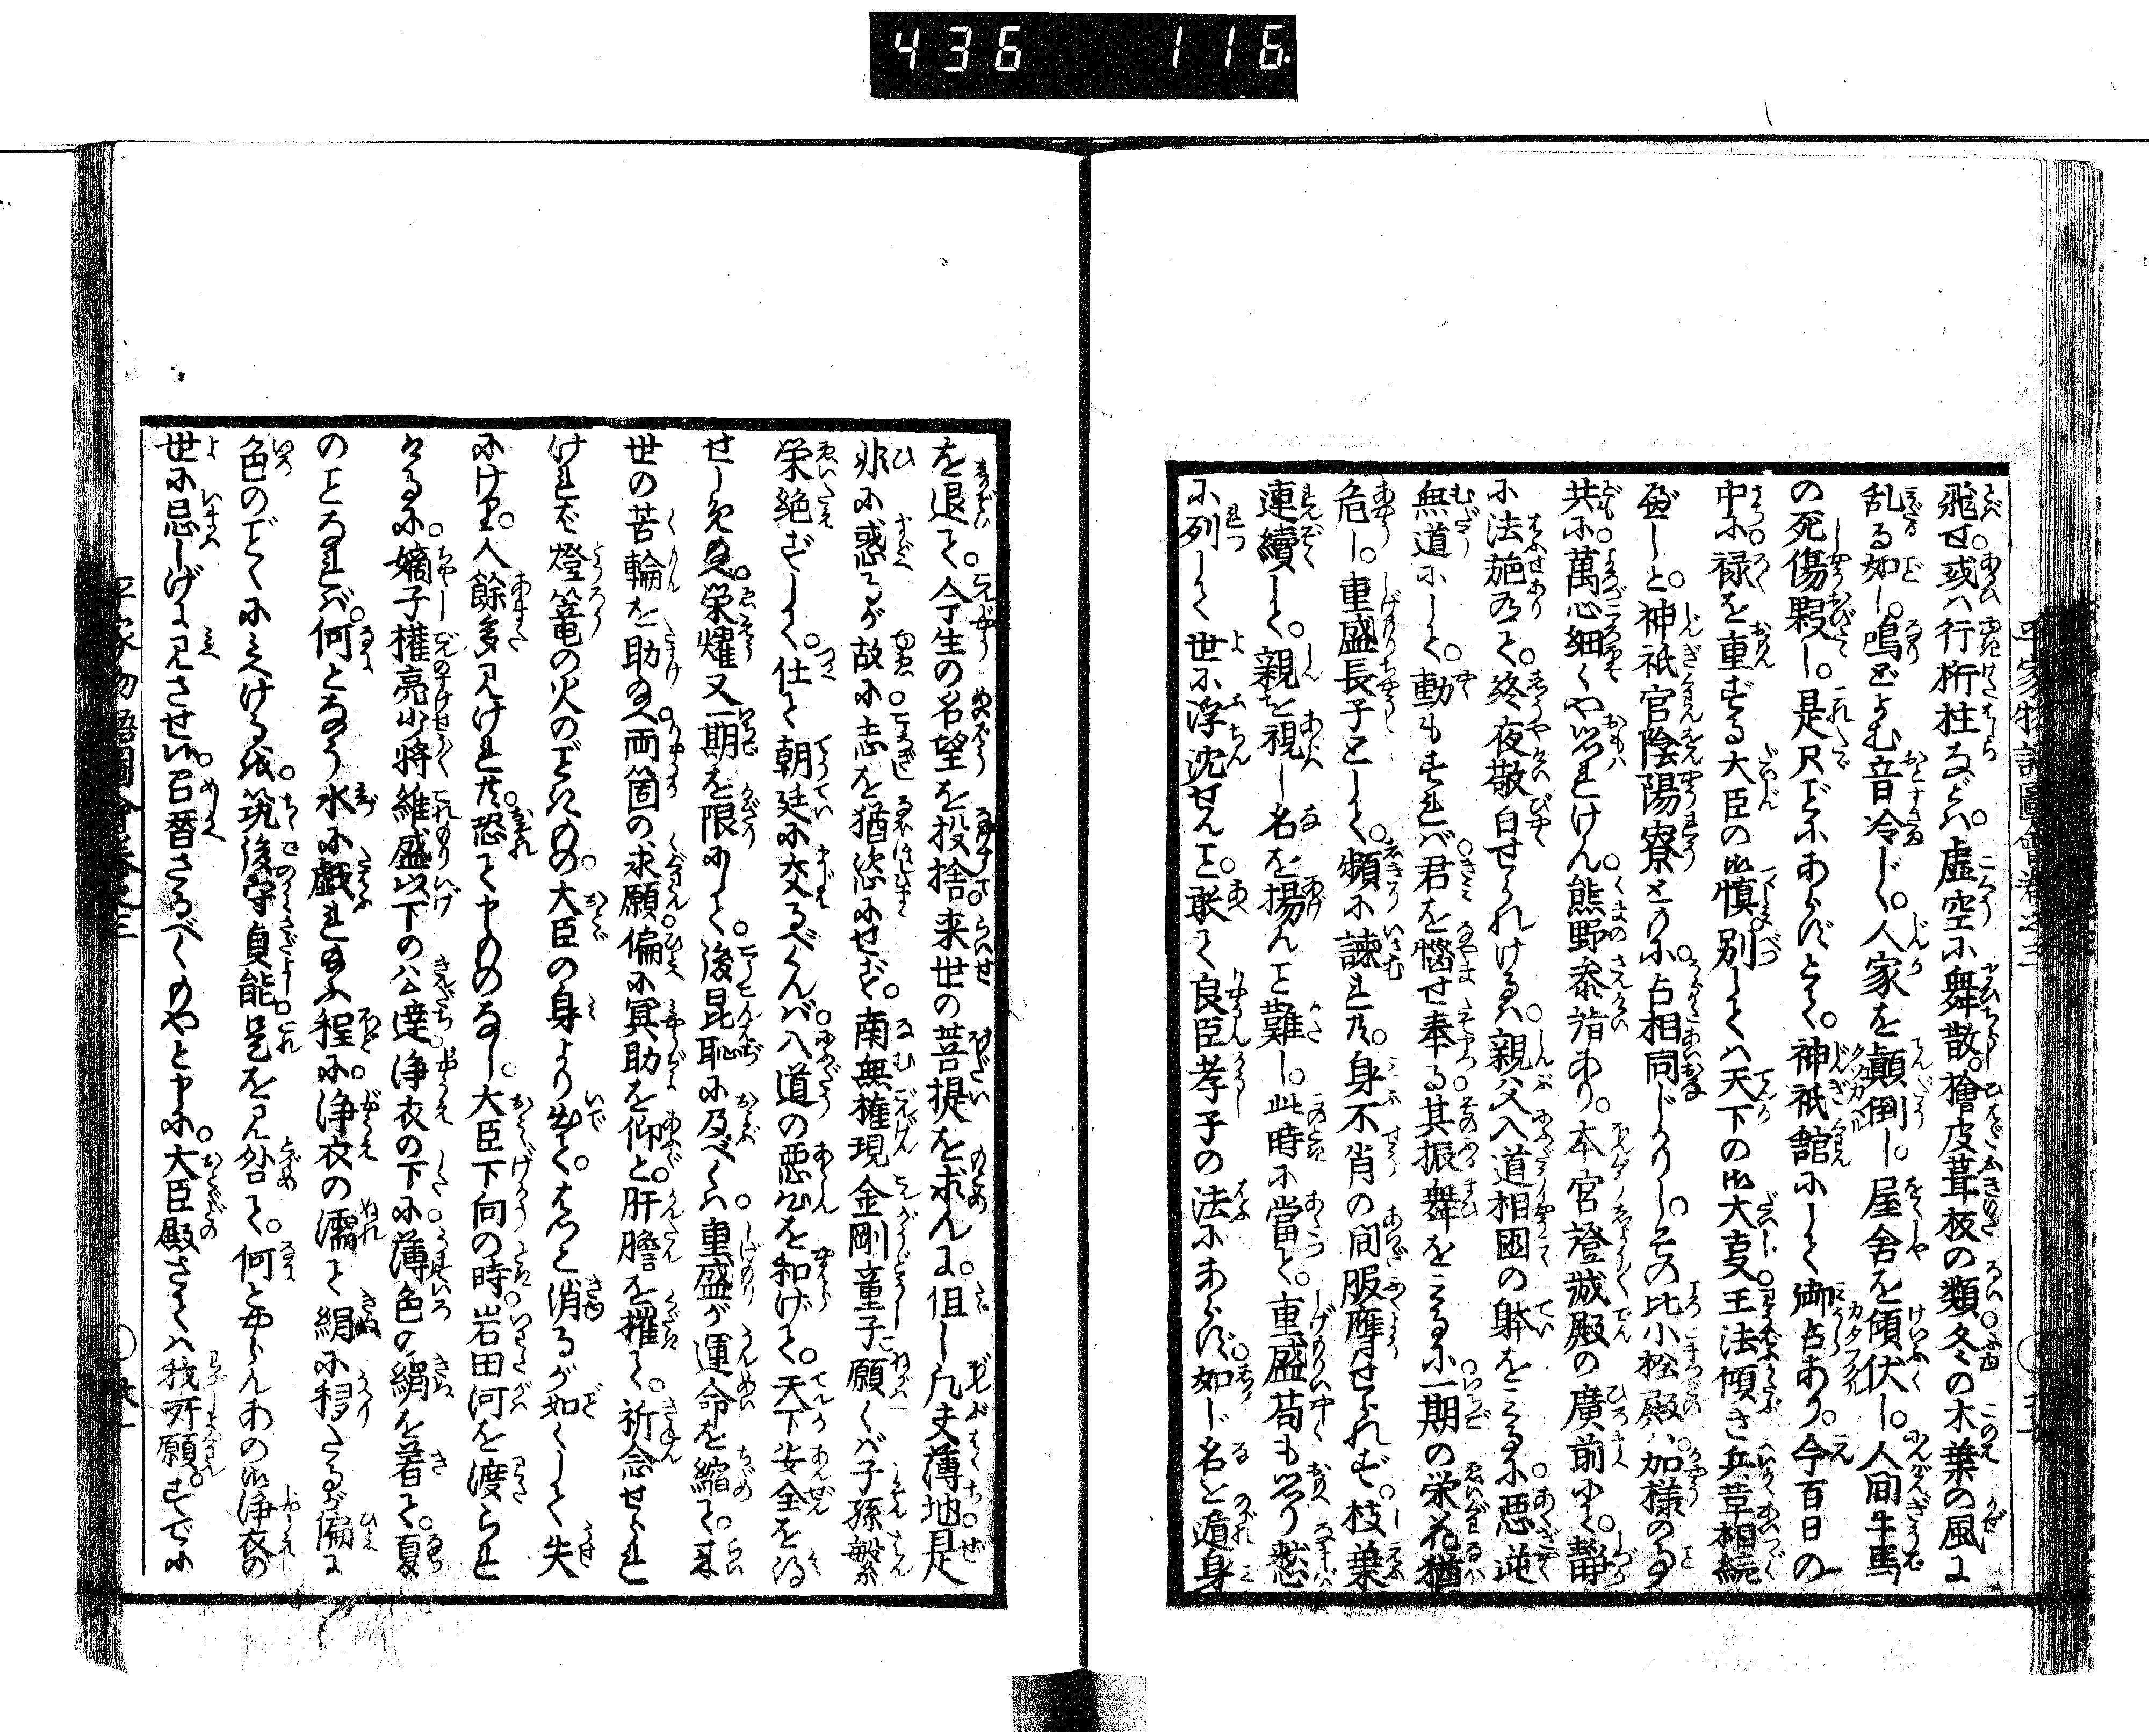 436 116
飛せ。或ハ行桁柱などハ。虚空に舞散。檜皮葺板の類。冬の木葉の風に
乱る如し。鳴どよむ音冷じく。人家を顛倒し。屋舎を傾伏し。人間牛馬
の死傷夥し。是只ごとにあらずとて。神祇館にして御占あり。今百日の
中に禄を重ずる大臣の御慎。別してハ天下の御大事。王法傾き兵革相続
すべしと。神祇官陰陽寮ともに。占相同じかりし。その比小松殿ハ。加様の事
共に。萬心細くや思れけん。熊野参詣あり。本宮證誠殿の廣前にて。静
に法施有て。終夜敬白せられけるハ。親父入道相國の躰をみるに。悪逆
無道にして。動もすれバ君を悩せ奉る。其振舞をみるに。一期の栄花猶
危し。重盛長子として。頻に諫れ共。身不肖の間服膺せられず。枝葉
連續して。親を視し名を揚んこと難し。此時に當て。重盛苟も思り。憖
に列して世に浮沈せんこと。敢て良臣孝子の法にあらず。如じ名を遁身
を退て。今生の名望を投捨。来世の菩提を求んに。但し凡夫薄地。是
非に惑るが故に。志を猶恣にせず。南無権現金剛童子。願くバ子孫繁
栄絶ずして。仕て朝廷に交るべくんバ。入道の悪心を和げて。天下安全を得
せしめ給へ。栄耀又一期を限にして。後昆恥に及べくハ。重盛が運命を縮て。来
世の苦輪を助給へ。両箇の求願。偏に冥助を仰と。肝膽を摧て。祈念せられ
けれバ。燈篭の火のごときもの。大臣の身より出て。はつと消るが如くして失
にけり。人餘多見けれ共。恐て申ものなし。大臣下向の時。岩田河を渡られ
けるに。嫡子権亮少将維盛以下の公達。浄衣の下に薄色の絹を着て。夏
のことなれバ。何となう水に戯れ給ふ程に。浄衣の濡て絹に移たるが。偏に
色のごとくにみえける を。筑後守貞能是を見咎て。何とやらんあの御浄衣の
世に忌しげに見させ給。召替さるべくもやと申に。大臣殿さてハ我所願。すでに